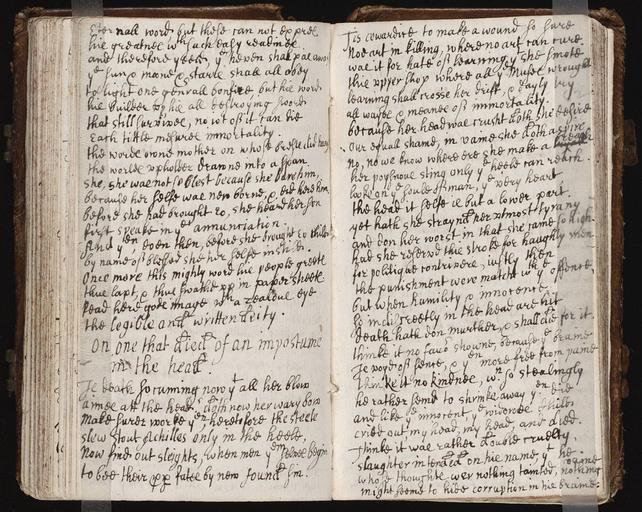 Eternall word, but these can not expres
his greatnes wth such easy readines.
and therefore yeeld, ye heven shal pas away
ye sun & moone & starrs shall all obey
to light one genrall bonfire, but his word
his builder up his all destroying sword
that still survives, no iot of it can die
Each tittle measures immortality.
the words owne mother on whose brest did hang
the worlds upholder drawne into a span
she, she was not so blest because she bare him,
because her selfe was new borne, & did here him,
before she had brought to, she heard her son
first speake in ye annunciation.
And yen even then, before she brought to child
by name of blessed she her selfe instiled
Once more this mighty word his people greets
thus lapt, & thus swathd up in paper sheets
read here gods image wth a zealous eye
the legible and written deity.
On one that died of an impostume
in the head
Is death so cunning now yt all her blow
aimes att the head, doth now her wary bow
make surer worke yn heretofore the steele
slew stout Achilles only in the heele.
Now find out sleights, when men ym selves begin
to bee their pp fates by new found sin.
Tis cowardise to make a wound so sure
No art in killing, where no art can cure
was it for hate of learning yt she smote
this upper shop where all ye muses wrought
learning shall crosse her drift, & dayly try
all wayes & meanes of immortality.
because her head was crusht doth she desire
Our equall shame, in vaine she doth aspire
No, no we know where ere she make a breach
her poysnous sting only ye heele can reach
looke on ye soule of man, ye very heart
the head it selfe is but a lower part,
yet hath she straynd her utmost tyrany
and don her worst in that she came so high
had she reservd this stroke for haughty men
for politique contrivers, iustly then
the punishment were matcht wth ye offence,
but when humility & innocence
so indiscreetly in the head are hit
death hath don murther, & shall die for it.
thinke it no favor showne, because ye braine
Is voyd of sence, & yn more free from paine
thinke it no kindnes, wn so stealingly
he rather semd to shrinke away yen die
and like ye innocent, ye widowes child
cried out, my head, my head, and died.
thinke it was rather double cruelty,
slaughter intended on his name, yt he
whose thoughts wer nothing tainted, nothing vaine
might seeme to hide corruption in his braine.